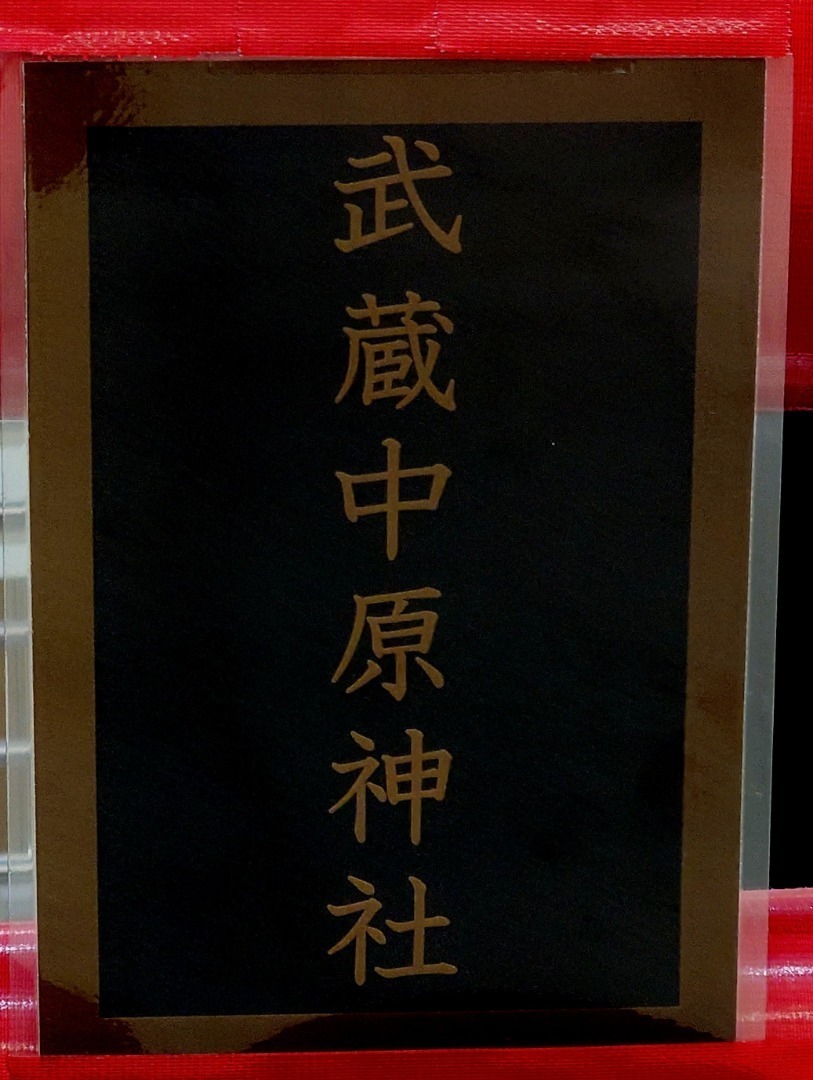 武蔵中原神社